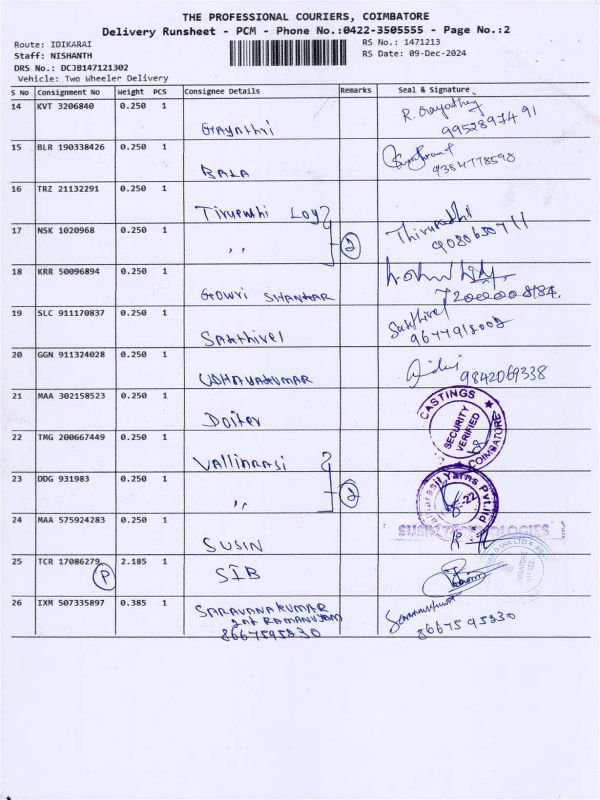 THE PROFESSIONAL COURIERS, COIMBATORE
Delivery Runsheet - PCM - Phone No.:0422-3505555 - Page No.:2
Route: IDIKARAI
RS No.: 1471213
Staff: NISHANTH
RS Date: 09-Dec-2024
DRS No.: DCJB147121302
Vehicle: Two Wheeler Delivery
S No Consignment No Weight PCS Consignee Details Remarks Seal & Signature
14 KVT 3206840 0.250 1
Gayathri R. Gayathry
9952897491
15 BLR 190338426 0.250 1
BALA 9384778598
16 TRZ 21132291 0.250 1
Tirupathi
17 NSK 1020968 0.250 1 Thirupathi
,, 2 9080650711
18 KRR 50096894 0.250 1
Gowri SHANKAR
19 SLC 911170837 0.250 1
Sakthivel Sakthivel
9677918008
20 GGN 911324028 0.250 1
UDHAYAKUMAR 9842069338
21 MAA 302158523 0.250 1
CASTINGS
SECURITY
VERIFIED
COIMBATORE
22 TMG 200667449 0.250 1
Valliarasi
23 DDG 931983 0.250 1
,, 2
Yarns Pvt.Ltd
24 MAA 575924283 0.250 1
SUSIN TECHNOLOGIES
SUSIN
25 TCR 17086279 2.185 1
P SIB
26 IXM 507335897 0.385 1
SARAVANAKUMAR
2nd RAMANUJAM
8667595330 8667595330